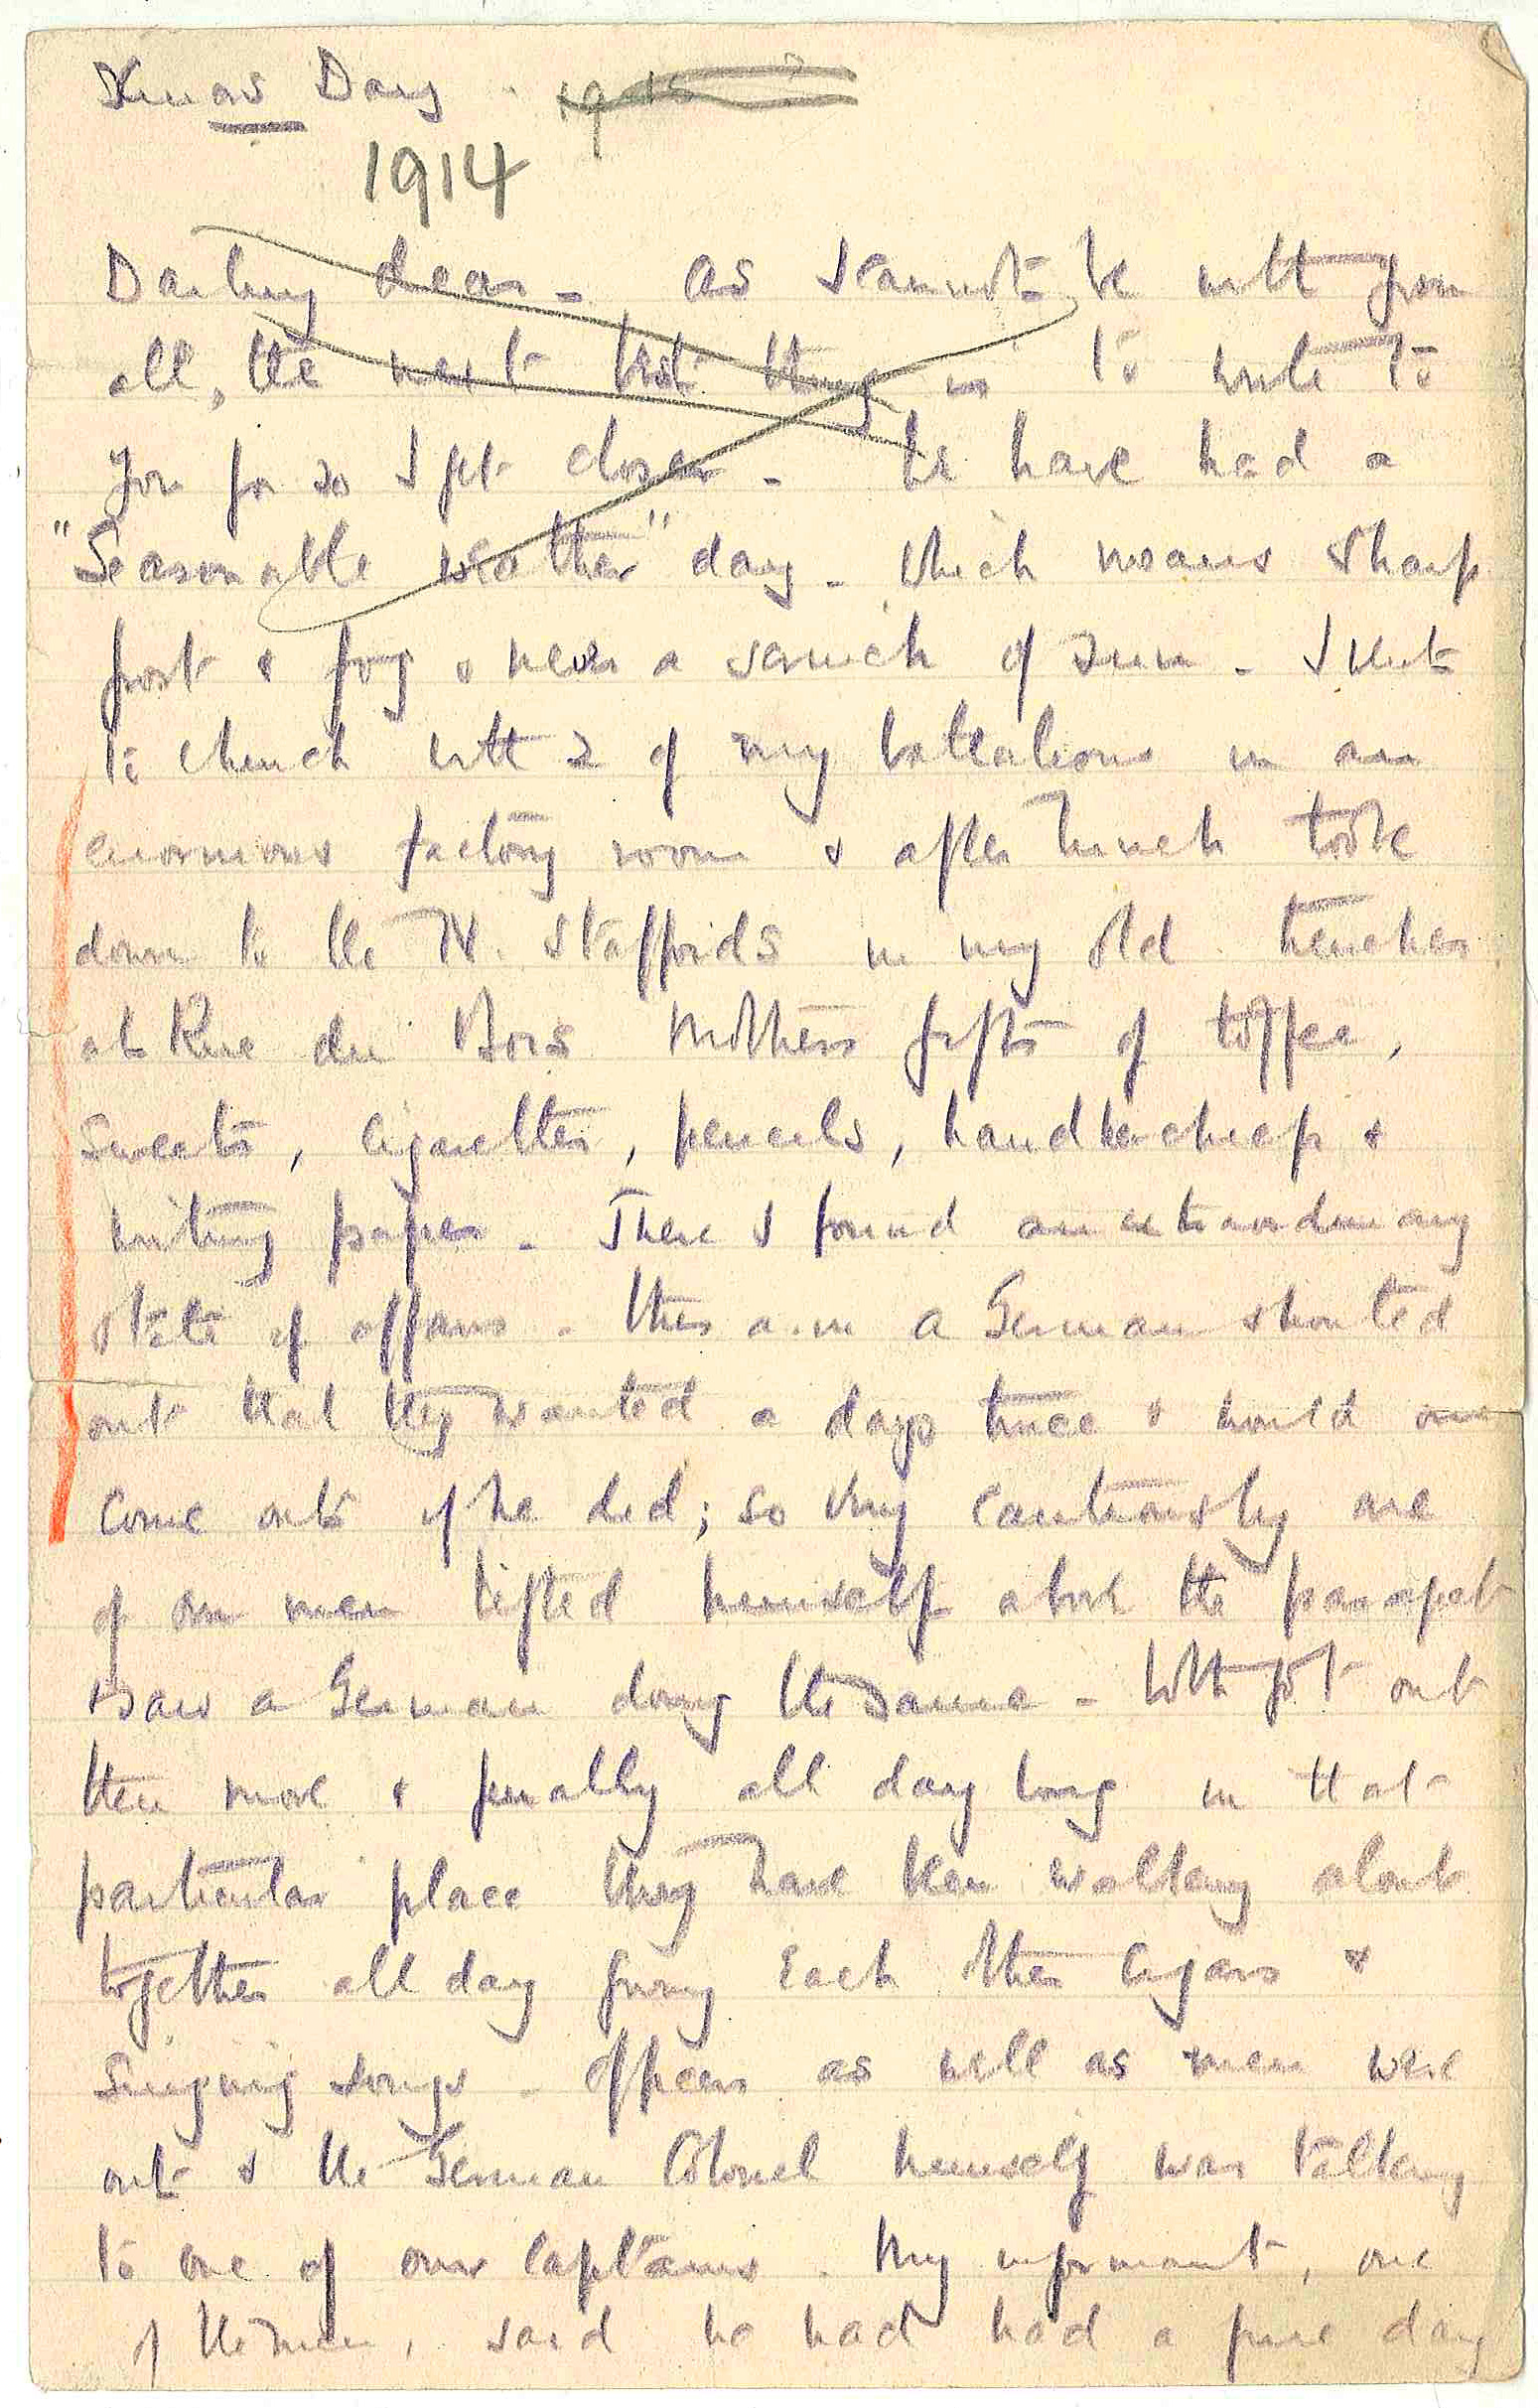 Xmas Day 1915
1914
Darling dear - As I cannot be with you
all, the next best thing is to write to
you for so I get closer - We have had a
"Seasonable weather" day - which means sharp
frost & fog & never a scruch of sun - I went
to church with 2 of my battalions in an
enormous factory room & after lunch took
down to the N. Staffords in my old trenches
at Rue du Bois Mothers gifts of toffee,
sweets, cigarettes, pencils, handkerchiefs &
writing paper - There I found an extraordinary
state of affairs - this a.m a German shouted
out that they wanted a days truce & would one
come out if he did; so very cautiously one
of our men lifted himself above the parapet
& saw a German doing the same - Both got out
then more & finally all day long in that
particular place they have been walking about
together all day giving each other cigars &
singing songs - Officers as well as men were
out & the German Colonel himself was talking
to one of our Captains. My informant, one
of the men, said he had had a fine day